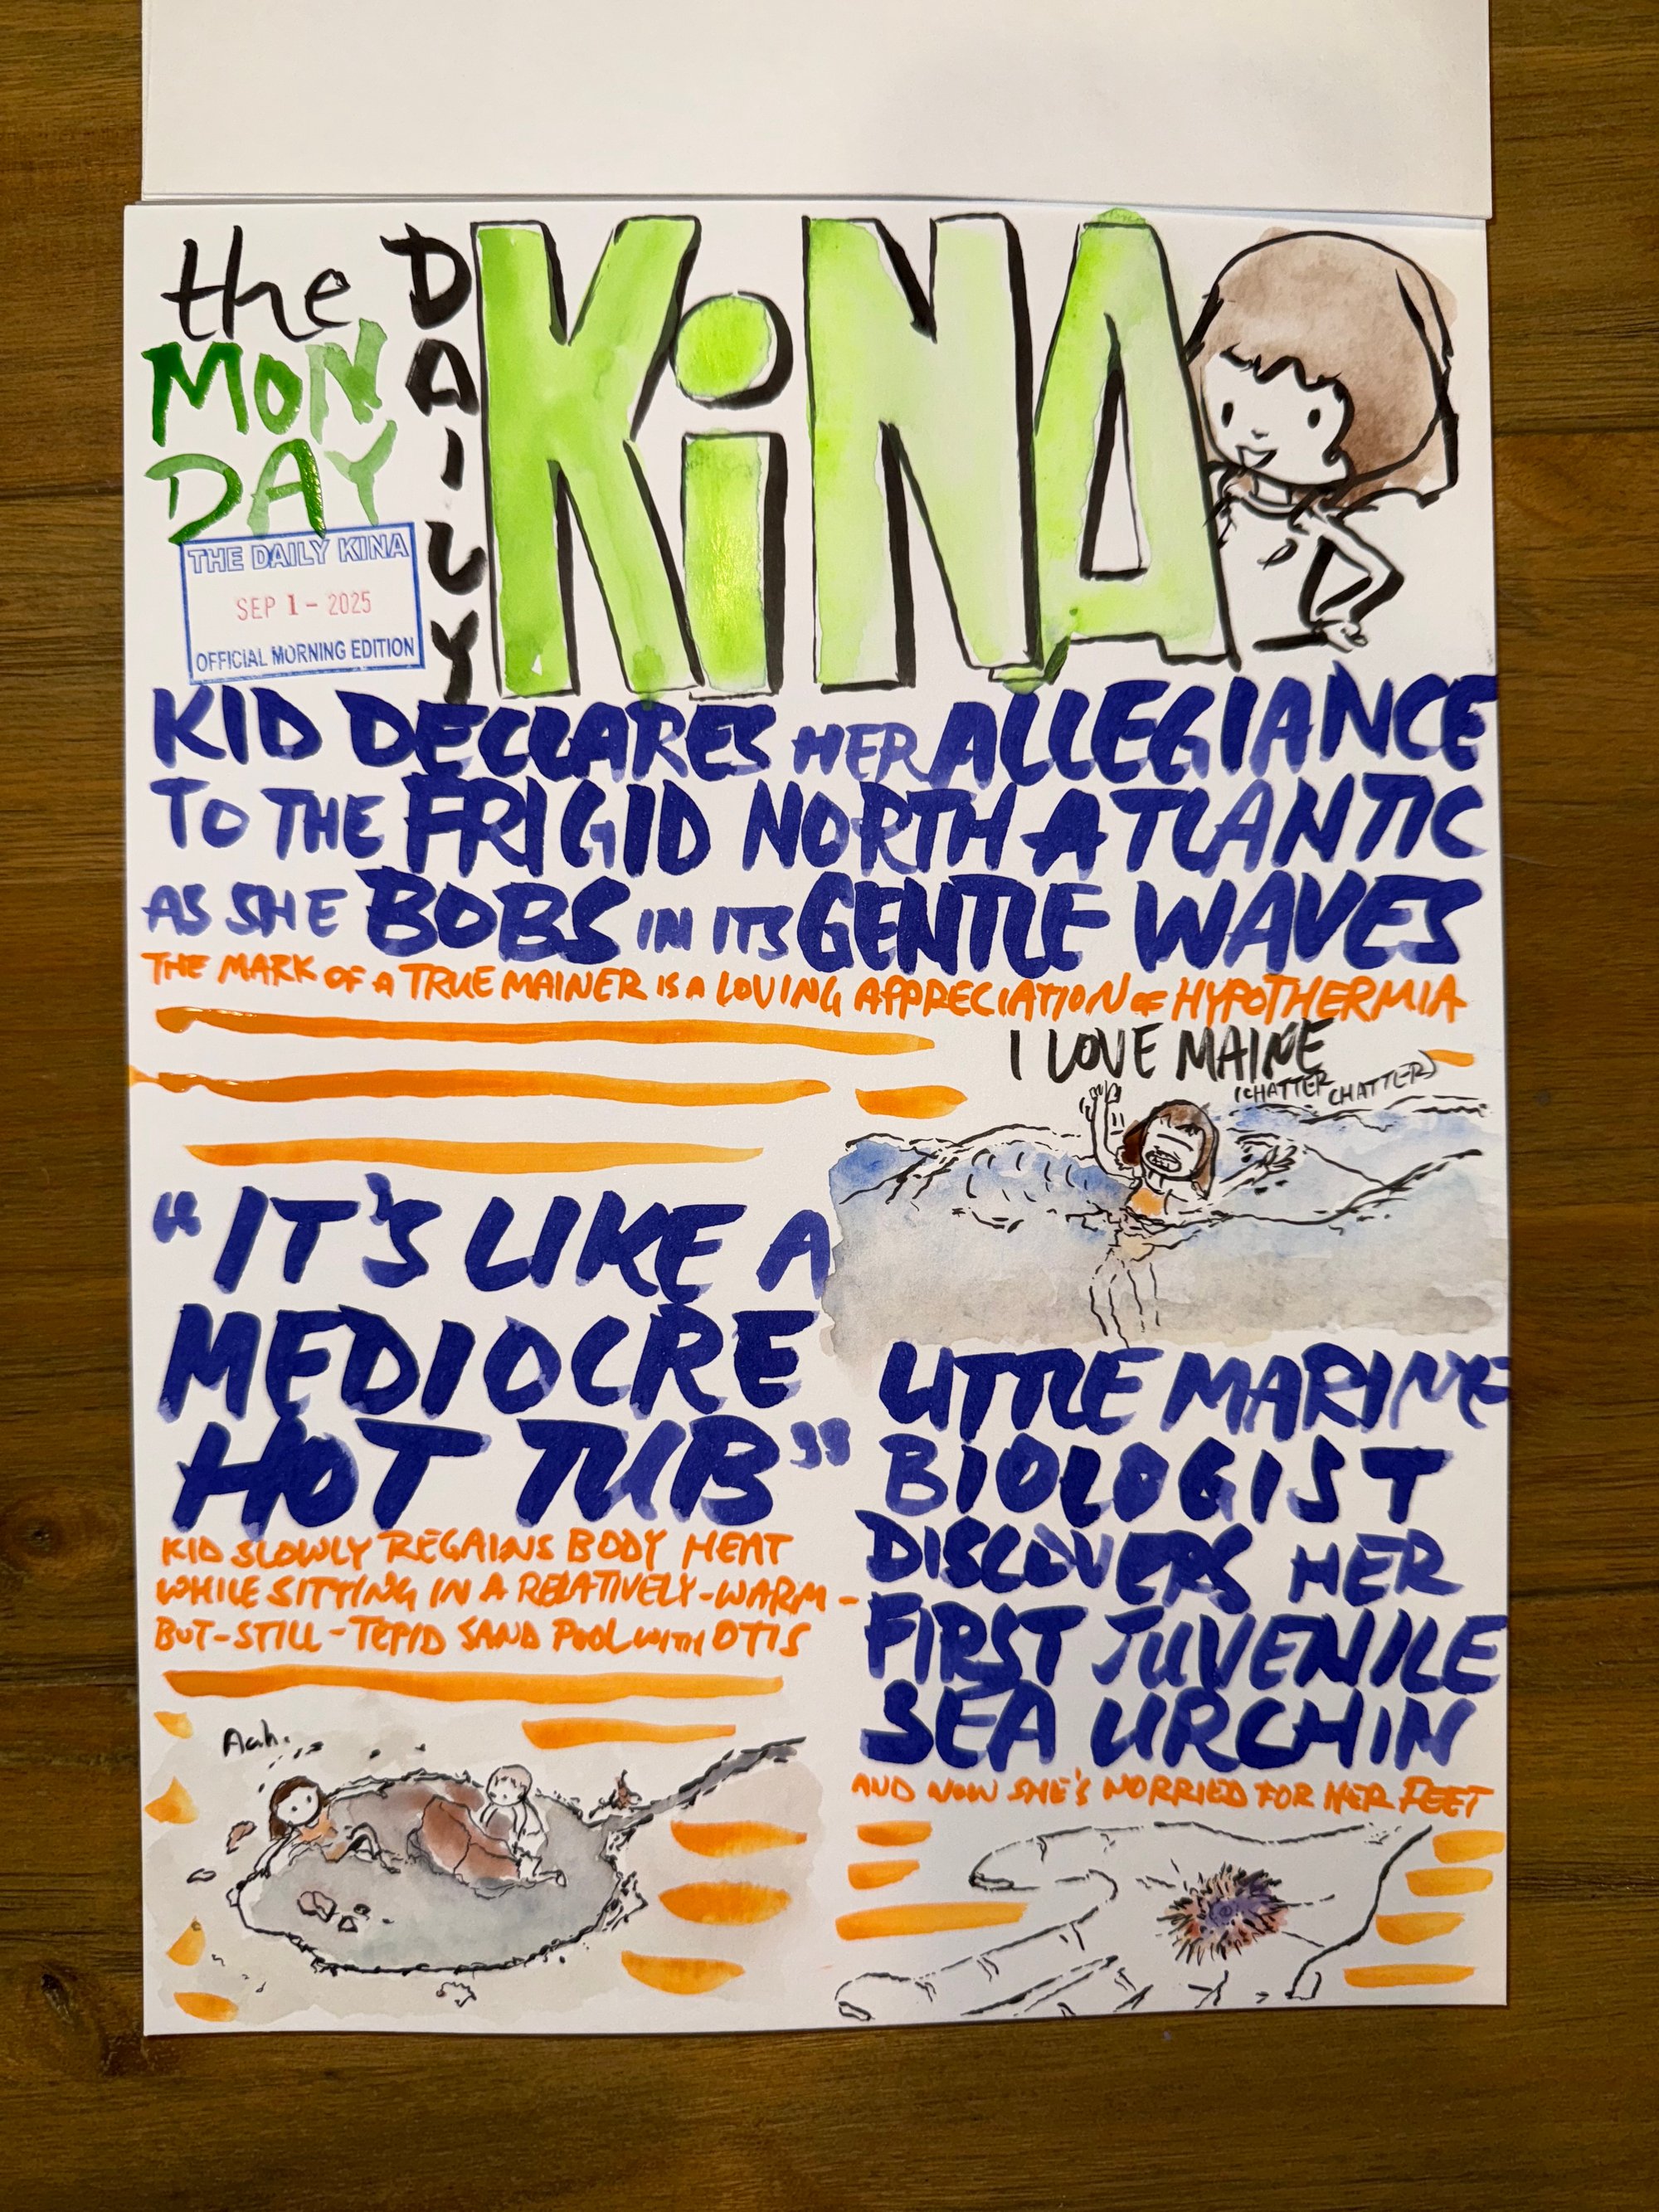 the
MON
DAY
DAILY
KiNA
THE DAILY KINA
SEP 1 - 2025
OFFICIAL MORNING EDITION
KID DECLARES HER ALLEGIANCE
TO THE FRIGID NORTH ATLANTIC
AS SHE BOBS IN ITS GENTLE WAVES
THE MARK OF A TRUE MAINER IS A LOVING APPRECIATION OF HYPOTHERMIA
I LOVE MAINE
(CHATTER CHATTER)
"IT'S LIKE A
MEDIOCRE
HOT TUB"
KID SLOWLY REGAINS BODY HEAT
WHILE SITTING IN A RELATIVELY-WARM-
BUT-STILL-TEPID SAND POOL WITH OTIS
Aah.
LITTLE MARINE
BIOLOGIST
DISCOVERS HER
FIRST JUVENILE
SEA URCHIN
AND NOW SHE'S WORRIED FOR HER FEET